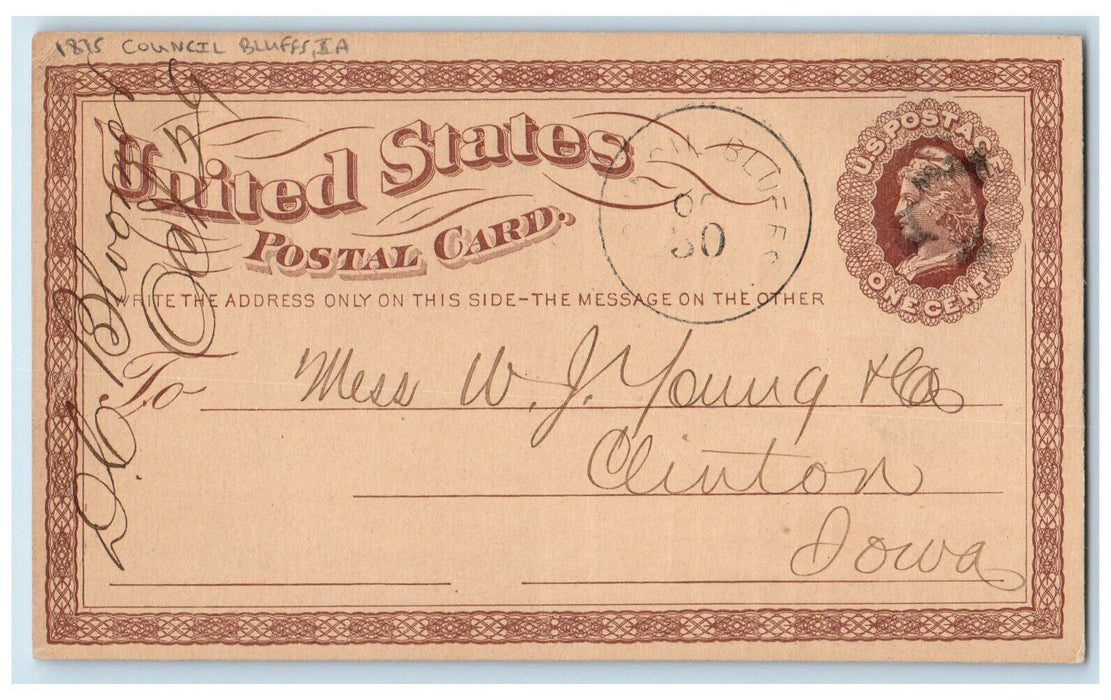 1875 COUNCIL BLUFFS, IA
United States
POSTAL CARD.
BLUFFS
OC
30
U.S. POSTAGE
ONE CENT
WRITE THE ADDRESS ONLY ON THIS SIDE-THE MESSAGE ON THE OTHER
To Mess W. J. Young & Co
Clinton
Iowa
D. C. Bloomer